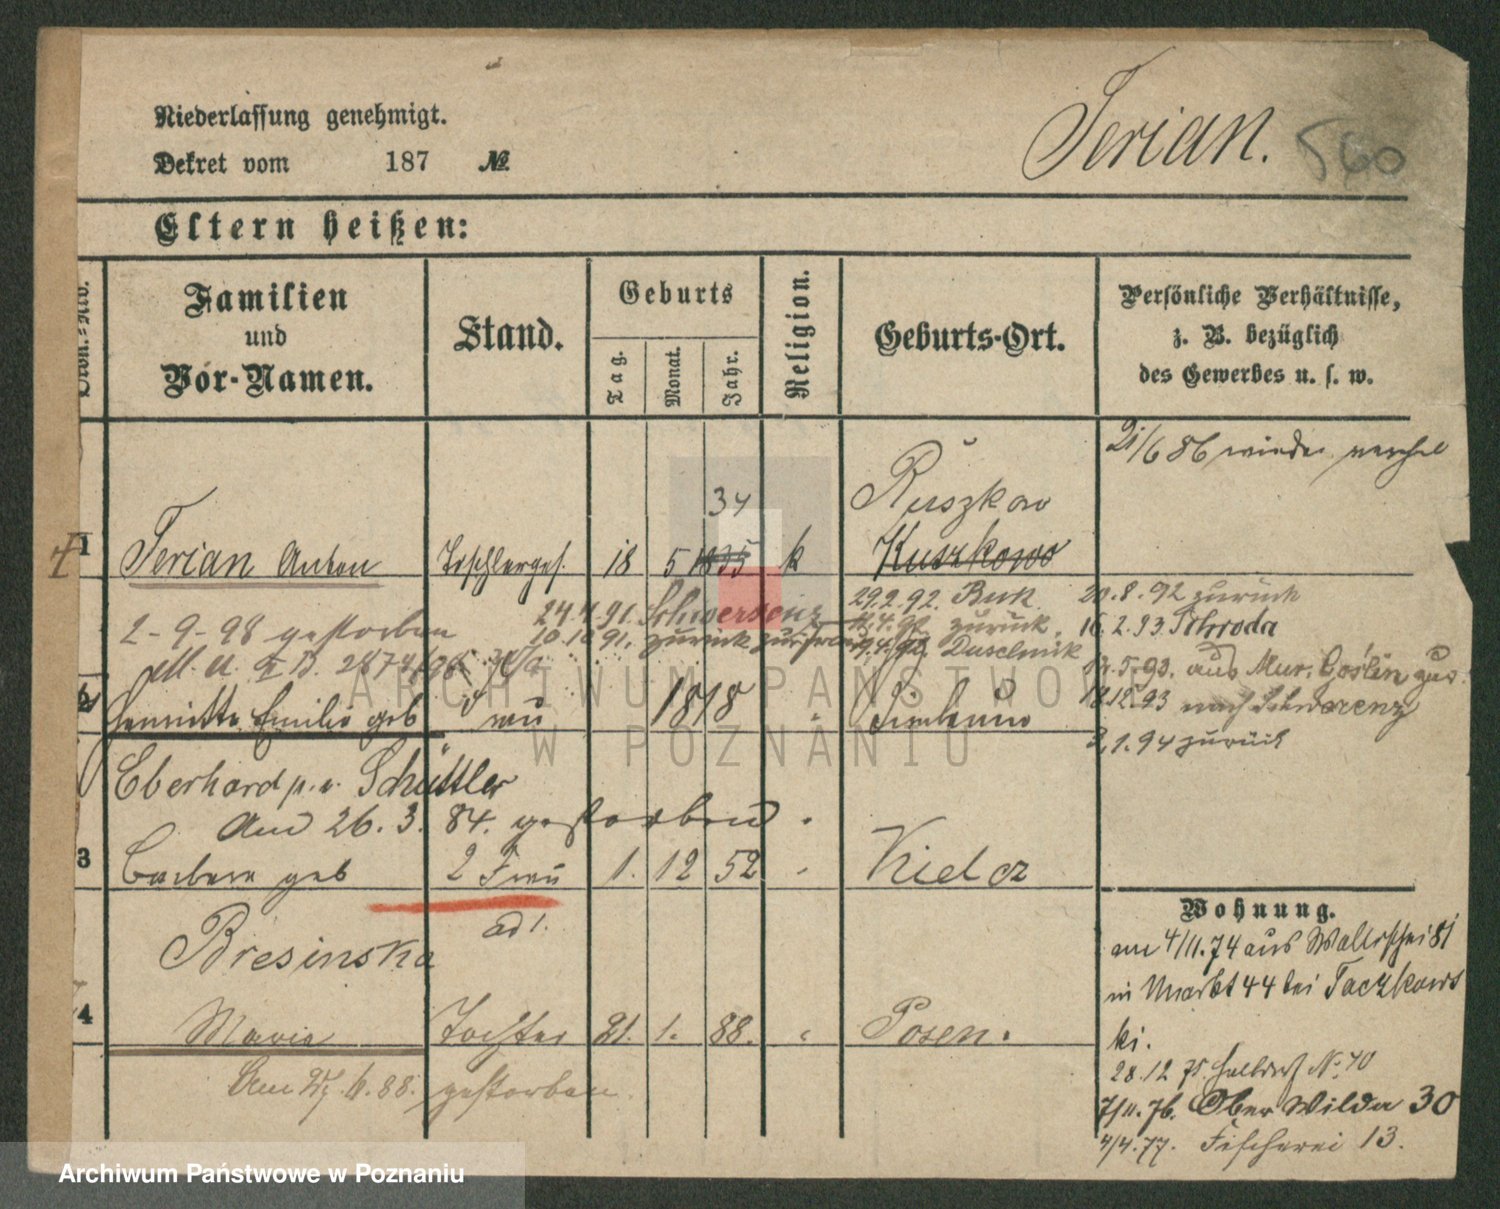 Niederlassung genehmigt.
Dekret vom 187 №
Terian. 560
Eltern heißen:
Familien
und
Vor-Namen.
Stand.
Geburts
Tag. Monat. Jahr.
Religion.
Geburts-Ort.
Persönliche Verhältnisse,
z. B. bezüglich
des Gewerbes u. s. w.
21/6 86 wieder
34 Ruszkow
1 Terian Anton Tischlerges. 18 5 1835 k Kuszkowo
24.4.91. Schwersenz 29.2.92. Buk 20.8.92 zurück
2-9-98 gestorben 10.10.91. zurück zur Frau zurück 16.2.93. Schroda
Duschnik .5.93. aus Mur. Goslin zur.
2 Henriette Emilie geb Frau 1818 18.12.93 nach Schwersenz
2.1.94 zurück
Eberhard p. v. Schüttler
Am 26.3.84. gestorben.
3 Barbara geb 2 Frau 1. 12 52 Kielcz
ad 1.
Bresinska
4 Maria Tochter 21. 1. 88. Posen.
Am 27.6.88. gestorben.
Wohnung.
am 4/11.74 aus Wallischei 81
in Markt 44 bei Taczkows
ki.
28.12 75. Halbdorf No. 70
7/11.76. Ober Wilda 30
4/4.77. Fischerei 13.
ARCHIWUM PAŃSTWOWE
W POZNANIU
Archiwum Państwowe w Poznaniu